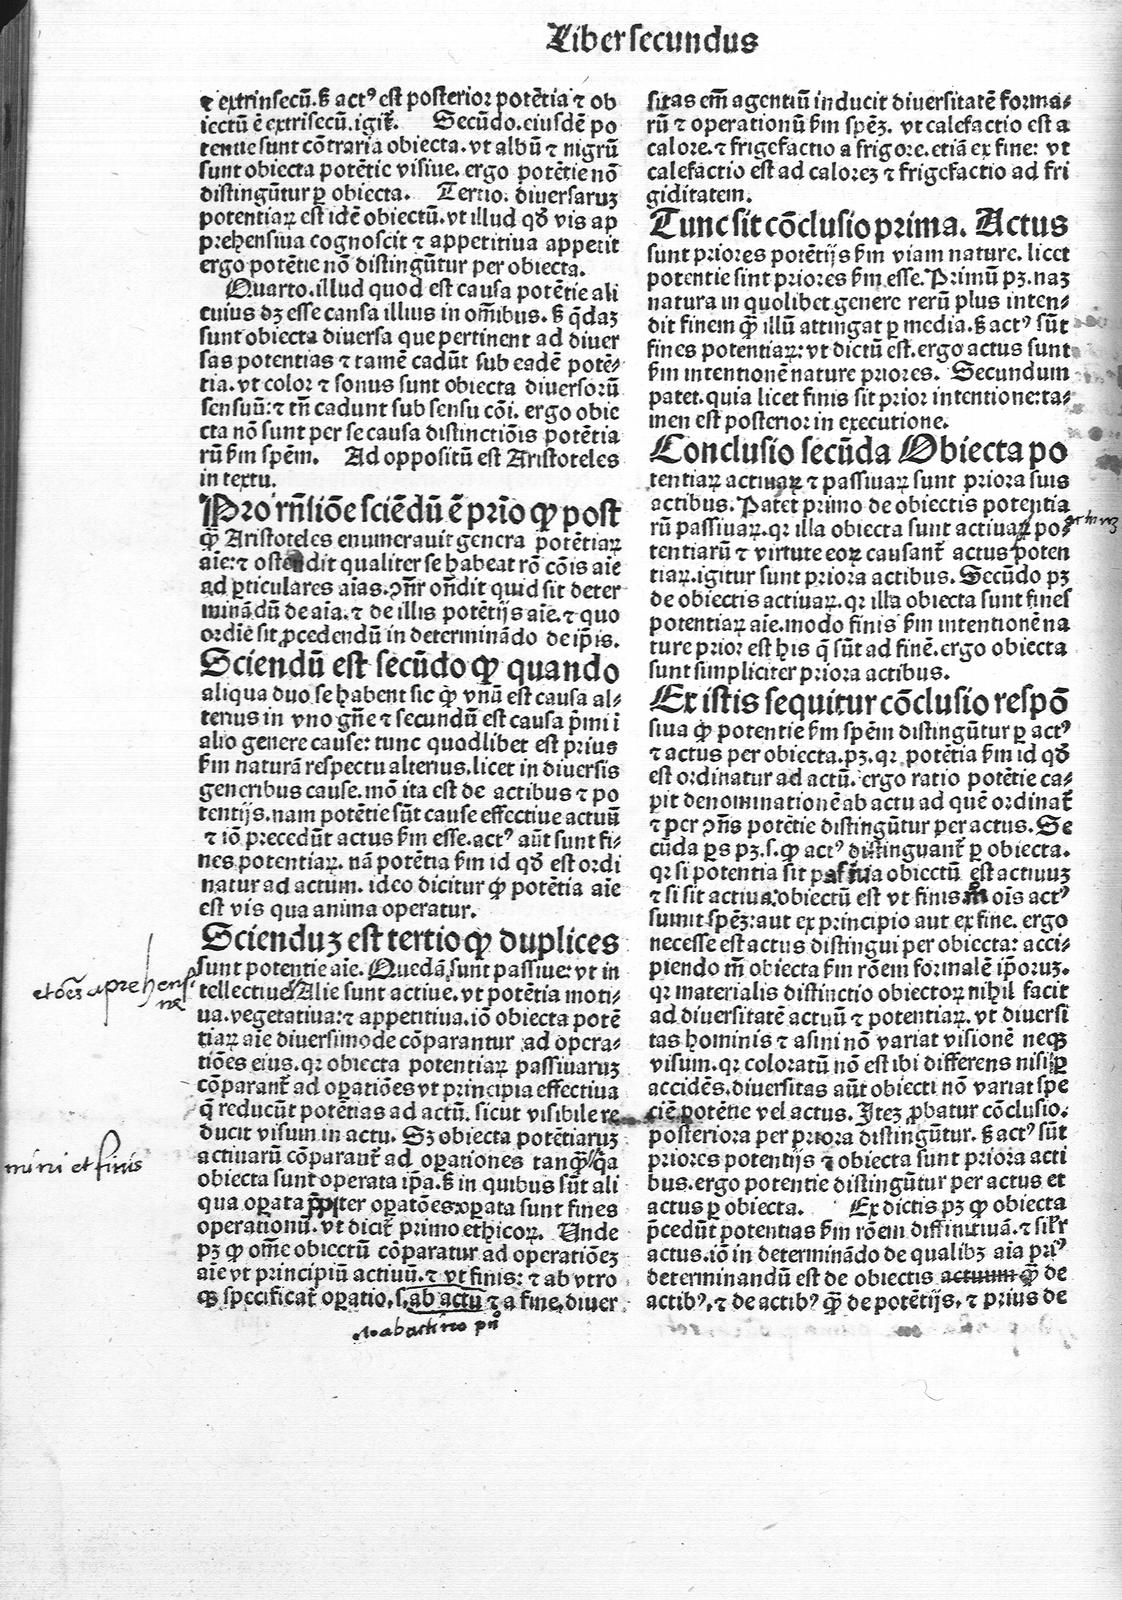 Liber secundus
⁊ extrinsecū. sꝫ actꝰ est posterior potētia ⁊ ob
iectū ē extrīsecū. igit̄. Secūdo. eiusdē po
tentie sunt cōtraria obiecta. vt albū ⁊ nigrū
sunt obiecta potētie visiue. ergo potētie nō
distingūtur ꝑ obiecta. Tertio. diuersaruꝫ
potentiaꝝ est idē obiectū. vt illud qď vis ap
prehensiua cognoscit ⁊ appetitiua appetit
ergo potētie nō distingūtur per obiecta.
Quarto. illud quod est causa potētie ali
cuius dꝫ esse causa illius in oīnibus. sꝫ q̄daꝫ
sunt obiecta diuersa que pertinent ad diuer
sas potentias ⁊ tamē cadūt sub eadē potē-
tia. vt color ⁊ sonus sunt obiecta diuersorū
sensuū: ⁊ tn̄ cadunt sub sensu cōi. ergo obie
cta nō sunt per se causa distinctiōis potētia
rū ẜm spēm. Ad oppositū est Aristoteles
in textu.
Pro rn̄sliōe sciēdū ē prīo ꝙ post
q̄ Aristoteles enumerauit genera potētiaꝝ
aīe: ⁊ ostēdit qualiter se habeat rō cōis aīe
ad ꝑticulares aīas. ꝯn̄r oñdit quid sit deter
minādū de aīa. ⁊ de illis potētijs aīe. ⁊ quo
ordīe sit ꝓcedendū in determinādo de ip̄is.
Sciendū est secūdo ꝙ quando
aliqua duo se habent sic ꝙ vnū est causa al-
terius in vno gn̄e ⁊ secundū est causa p̄mi ī
alio genere cause: tunc quodlibet est prius
ẜm naturā respectu alterius. licet in diuersis
generibus cause. mō ita est de actibus ⁊ po
tentijs. nam potētie sūt cause effectiue actuū
⁊ iō precedūt actus ẜm esse. actꝰ aūt sunt fi-
nes potentiaꝝ. nā potētia ẜm id qď est ordi
natur ad actum. ideo dicitur ꝙ potētia aīe
est vis qua anima operatur.
Scienduꝫ est tertio ꝙ duplices
sunt potentie aīe. Quedā sunt passiue: vt in
tellectiue Alie sunt actiue. vt potētia moti-
ua. vegetatiua: ⁊ appetitiua. iō obiecta potē
tiaꝝ aīe diuersimode cōparantur ad opera-
tiōes eius. qꝛ obiecta potentiaꝝ passiuaruꝫ
cōparant̄ ad oꝑatiōes vt principia effectiua
q̄ reducūt potētias ad actū. sicut visibile re
ducit visum in actu. Sꝫ obiecta potētiaruꝫ
actiuarū cōparant̄ ad oꝑationes tanꝙ q̄a
obiecta sunt operata ip̄a. sꝫ in quibus sūt ali
qua oꝑata p̄pter oꝑatōes oꝑata sunt fines
operationū. vt dicit̄ primo ethicoꝝ. Unde
pꝫ ꝙ oīne obiectū cōparatur ad operatiōeꝫ
aīe vt principiū actiuū. ⁊ vt finis: ⁊ ab vtro
qꝫ specificat̄ oꝑatio, s. ab actu ⁊ a fine, diuer
sitas em̄ agentiū inducit diuersitatē forma-
rū ⁊ operationū ẜm spēꝫ. vt calefactio est a
calore. ⁊ frigefactio a frigore. etiā ex fine: vt
calefactio est ad caloreꝫ ⁊ frigefactio ad fri
giditatem.
Tunc sit cōclusio prima. Actus
sunt priores potētijs ẜm viam nature. licet
potentie sint priores ẜm esse. Primū pꝫ. naꝫ
natura in quolibet genere rerū plus inten-
dit finem q̄ illū attingat ꝑ media. sꝫ actꝰ sūt
fines potentiaꝝ: vt dictū est. ergo actus sunt
ẜm intentionē nature priores. Secundum
patet. quia licet finis sit prior intentione: ta-
men est posterior in executione.
Conclusio secūda Obiecta po
tentiaꝝ actiuaꝝ ⁊ passiuaꝝ sunt priora suis
actibus. Patet primo de obiectis potentia
rū passiuaꝝ. qꝛ illa obiecta sunt actiuaꝝ po-
tentiarū ⁊ virtute eoꝝ causant̄ actus poten
tiaꝝ. igitur sunt priora actibus. Secūdo pꝫ
de obiectis actiuaꝝ. qꝛ illa obiecta sunt fines
potentiaꝝ aīe. modo finis ẜm intentionē na
ture prior est his q̄ sūt ad finē. ergo obiecta
sunt simpliciter priora actibus.
Ex istis sequitur cōclusio respō
siua ꝙ potentie ẜm spēm distingūtur ꝑ actꝰ
⁊ actus per obiecta. pꝫ. qꝛ potētia ẜm id qď
est ordinatur ad actū. ergo ratio potētie ca-
pit denominationē ab actu ad quē ordinat̄
⁊ per ꝯn̄s potētie distingūtur per actus. Se
cūda ꝑs pꝫ. s. ꝙ actꝰ distinguant̄ ꝑ obiecta.
qꝛ si potentia sit passiua obiectū est actiuuꝫ
⁊ si sit actiua, obiectū est vt finis. mō oīs actꝰ
sumit spēꝫ: aut ex principio aut ex fine. ergo
necesse est actus distingui per obiecta: acci-
piendo tn̄ obiecta ẜm rōem formalē ip̄oruꝫ.
qꝛ materialis distinctio obiectoꝝ nihil facit
ad diuersitatē actuū ⁊ potentiaꝝ. vt diuersi
tas hominis ⁊ asini nō variat visionē neqꝫ
visum. qꝛ coloratū nō est ibi differens nisi ꝑ
accidēs. diuersitas aūt obiecti nō variat spe
ciē potētie vel actus. Iteꝫ ꝓbatur cōclusio.
posteriora per priora distingūtur. sꝫ actꝰ sūt
priores potentijs ⁊ obiecta sunt priora acti
bus. ergo potentie distingūtur per actus et
actus ꝑ obiecta. Ex dictis pꝫ ꝙ obiecta
p̄cedūt potentias ẜm rōem diffinitiuā. ⁊ silr̄
actus. iō in determinādo de qualibꝫ aīa priꝰ
determinandū est de obiectis actuum q̄ de
actibꝰ, ⁊ de actibꝰ q̄ de potētijs, ⁊ prius de
et oēs aprehensi
ue
mini et finis